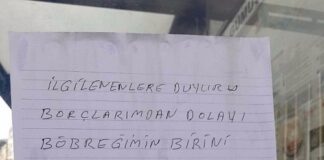 İLGİLENENLERE DUYURU
BORÇLARIMDAN DOLAYI
BÖBREĞİMİN BİRİNİ